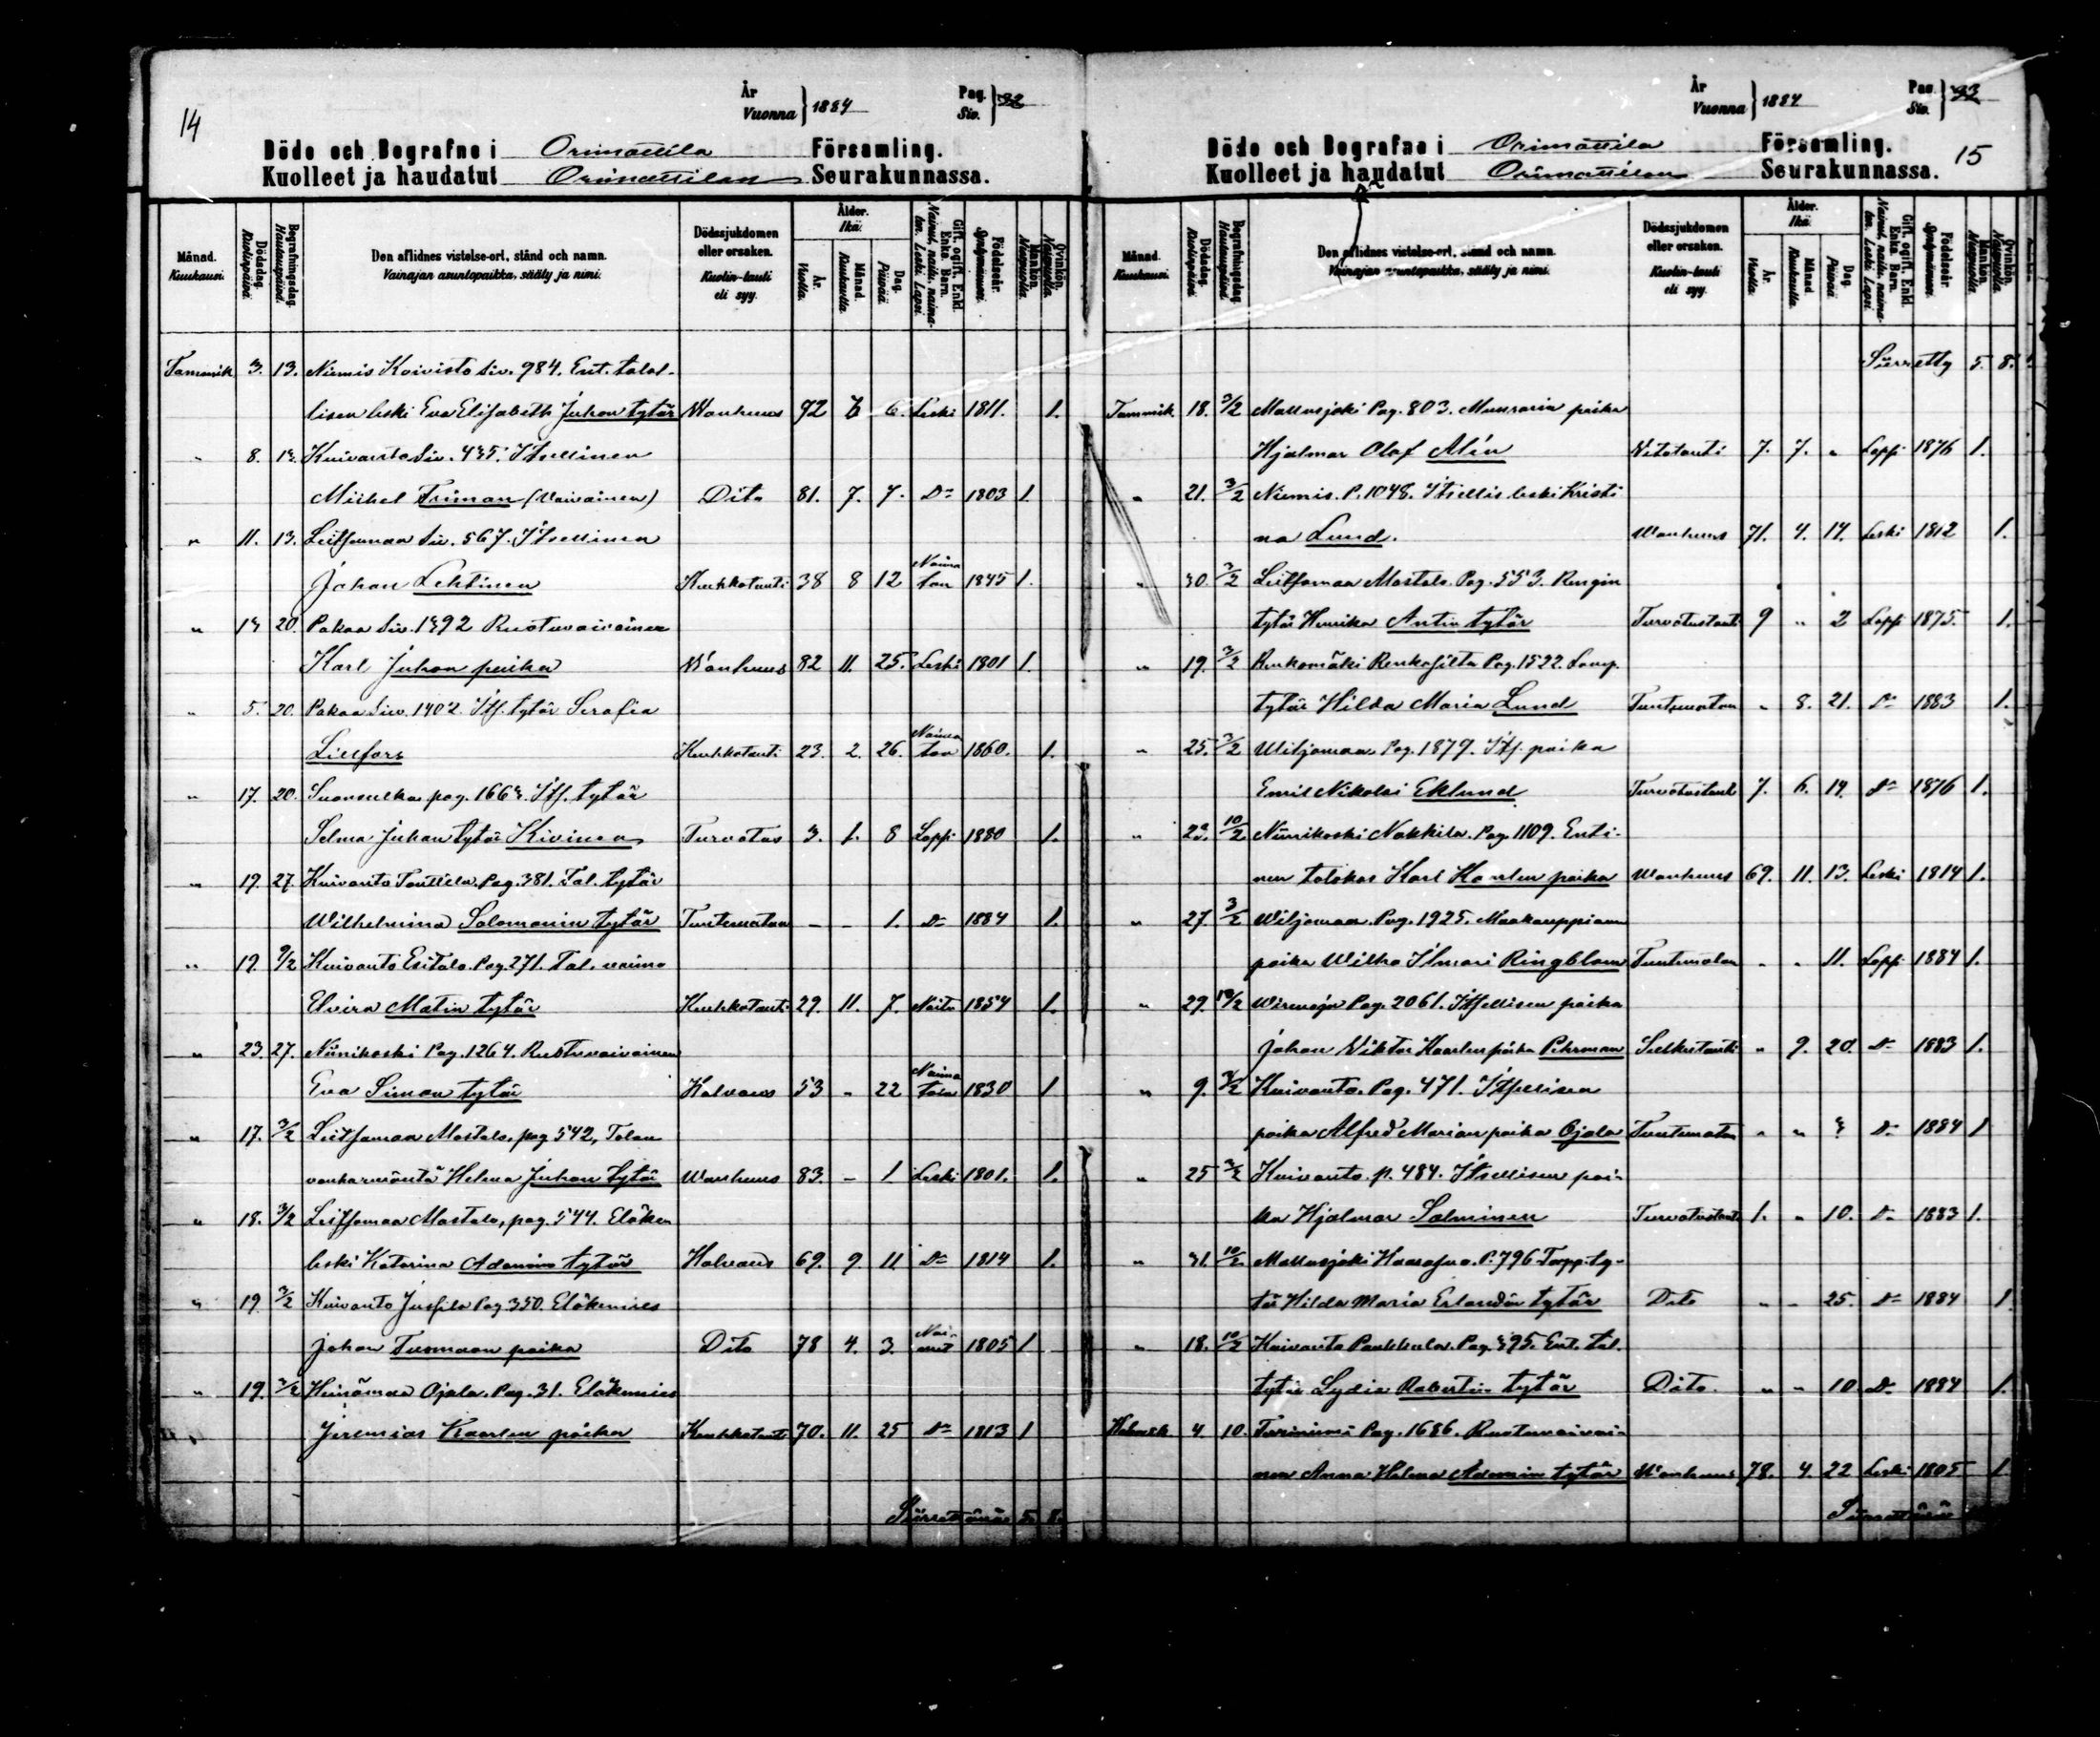 14
År
Vuonna } 1884
Pag.
Siv. } 32
Döde och Begrafne i Orimattila Församling.
Kuolleet ja haudatut Orimattilan Seurakunnassa.
Månad. Kuukausi.
Dödsdag. Kuolinpäivä.
Begrafningsdag. Hautauspäivä.
Den aflidnes vistelse-ort, stånd och namn.
Vainajan asuntopaikka, sääty ja nimi.
Dödssjukdomen eller orsaken.
Kuolin-tauti eli syy.
Ålder. Ikä.
År. Vuotta.
Månad. Kuukautta.
Dag. Päivää.
Gift, ogift, Enkl. Enka. Barn.
Nainut, naitu, naima-ton. Leski. Lapsi.
Födelseår. Syntymävuosi.
Mankön. Miespuolia.
Qvinkön. Naispuolia.
Tammik. 3. 13. Niemis Koivisto Siv. 984. Ent. talol-
lisen leski Eva Elisabeth Juhon tytär Wanhuus 72 6. Leski 1811. 1.
" 8. 13. Kuivanto Siv. 435. Itsellinen
Michel Friman (Vaivainen) Dito 81. 7. 7. D:o 1803 1.
" 11. 13. Leitsamaa Siv. 567. Itsellinen
Johan Lehtinen Keuhkotauti 38 8 12 Naima
ton 1845 1.
" 13 20. Pakaa Siv. 1392 Ruotuvaivainen
Karl Juhon poika Wanhuus 82 11. 25. Leski 1801 1.
" 5. 20. Pakaa Siv. 1402. Its. tytär Serafia
Lillfors Keuhkotauti 23. 2. 26. Naima
ton 1860. 1.
" 17. 20. Suonsulka pag. 1663. Its. tytär
Selma Juhan tytär Kivinen Turvotus 3. 1. 8 Lapsi 1880 1.
" 19. 27. Kuivanto Tonttila. Pag. 381. Tal. tytär
Wilhelmina Salomonin tytär Tuntematon - - 1. D:o 1884 1.
" 19. 9/2 Kuivanto Esitalo. Pag. 271. Tal. vaimo
Elvira Matin tytär Keuhkotauti 29. 11. 7. Naitu 1854 1.
" 23. 27. Niinikoski Pag. 1264. Ruotuvaivainen
Eva Simon tytär Halvaus 53 - 22 Naima
ton 1830 1
" 17. 3/2 Leitsamaa Mastola, pag 542, Talon
vanhaemäntä Helena Juhan tytär Wanhuus 83. - 1 Leski 1801. 1.
" 18. 3/2 Leitsamaa Mastola, pag. 544. Eläken
leski Katarina Adamin tytär Halvaus 69. 9 11 D:o 1814 1.
" 19. 3/2 Kuivanto Jussila Pag. 350. Eläkemies
Johan Tuomaan poika Dito 78 4. 3. Nai-
nut 1805 1
" 19. 3/2 Heinämaa Ojala. Pag. 31. Eläkemies
Jeremias Kaarlen poika Keuhkotauti 70. 11. 25 D:o 1813 1
Siirrettävää 5. 8.
År
Vuonna } 1884
Pag.
Siv. } 33
Döde och Begrafne i Orimattila Församling.
Kuolleet ja haudatut Orimattilan Seurakunnassa.
15
Månad. Kuukausi.
Dödsdag. Kuolinpäivä.
Begrafningsdag. Hautauspäivä.
Den aflidnes vistelse-ort, stånd och namn.
Vainajan asuntopaikka, sääty ja nimi.
Dödssjukdomen eller orsaken.
Kuolin-tauti eli syy.
Ålder. Ikä.
År. Vuotta.
Månad. Kuukautta.
Dag. Päivää.
Gift, ogift, Enkl. Enka. Barn.
Nainut, naitu, naima-ton. Leski. Lapsi.
Födelseår. Syntymävuosi.
Mankön. Miespuolia.
Qvinkön. Naispuolia.
Siirretty 5. 8.
Tammik. 18. 3/2 Mallusjoki Pag. 803. Muurarin poika
Hjalmar Olof Alén Vetotauti 7. 7. " Lapsi 1876 1.
" 21. 3/2 Niemis. P. 1048. Itsellis leski Kristi
na Lund. Wanhuus 71. 4. 14. Leski 1812 1.
" 30. 3/2 Leitsamaa Mastola. Pag. 553. Rengin
tytär Henrika Antin tytär Turvotustauti 9 " 2 Lapsi 1875. 1.
" 19. 3/2 Renkomäki Renkosilta Pag. 1522. Lamp.
tytär Hilda Maria Lund Tuntematon " 8. 21. D:o 1883 1.
" 25. 3/2 Wiljamaa. Pag. 1879. Its. poika
Emil Nikolai Eklund Turvotustauti 7. 6. 14. D:o 1876 1.
" 23. 10/2 Niinikoski Nokkila. Pag. 1109. Enti-
nen talokas Karl Kaarlen poika Wanhuus 69. 11. 13. Leski 1814 1.
" 27. 3/2 Wiljamaa. Pag. 1925. Maakauppiaan
poika Wilho Ilmari Ringblom Tuntematon " " 11. Lapsi 1884 1.
" 29. 10/2 Wirenoja Pag. 2061. Itsellisen poika
Johan Viktor Kaarlen poika Pehrman " 9. 20. D:o 1883 1.
" 9. 3/2 Kuivanto. Pag. 471. Itsellisen
poika Alfred Marian poika Ojala Tuntematon " " 3 D:o 1884 1
" 25 3/2 Kuivanto. p. 484. Itsellisen poi-
ka Hjalmar Salminen Turvotustauti 1. " 10. D:o 1883 1.
" 31. 10/2 Mallusjoki P. 796 Torpp. ty-
tär Hilda Maria Erlandin tytär Dito " - 25. D:o 1884 1
" 18. 10/2 Kuivanto Paukkula. Pag. 395. Ent. tal.
tytär Lydia Robertin tytär Dito. " " 10 D:o 1884 1.
Helmik. 4. 10. Pag. 1686. Ruotuvaivai-
nen Anna Helena Adamin tytär Wanhuus 78. 4. 22 Leski 1805 1
Siirrettävää